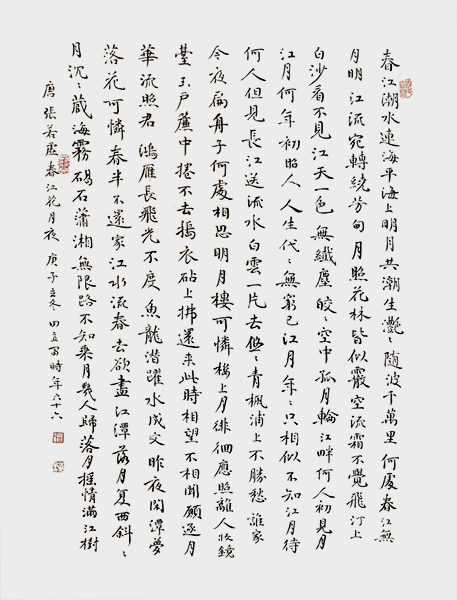 春江潮水連海平海上明月共潮生灧〻随波千萬里何處春江無
月明江流宛轉繞芳甸月照花林皆似霰空流霜不覺飛汀上
白沙看不見江天一色無纖塵皎〻空中孤月輪江畔何人初見月
江月何年初照人人生代〻無窮已江月年〻只相似不知江月待
何人但見長江送流水白雲一片去悠〻青楓浦上不勝愁誰家
今夜扁舟子何處相思明月樓可憐樓上月徘徊應照離人妝鏡
臺玉戶簾中捲不去搗衣砧上拂還来此時相望不相聞願逐月
華流照君鴻雁長飛光不度魚龍潛躍水成文昨夜閑潭夢
落花可憐春半不還家江水流春去欲盡江潭落月复西斜〻
月沉〻藏海霧碣石瀟湘無限路不知乘月幾人歸落月摇情滿江樹
唐張若虛春江花月夜庚子立冬田立時年六十六